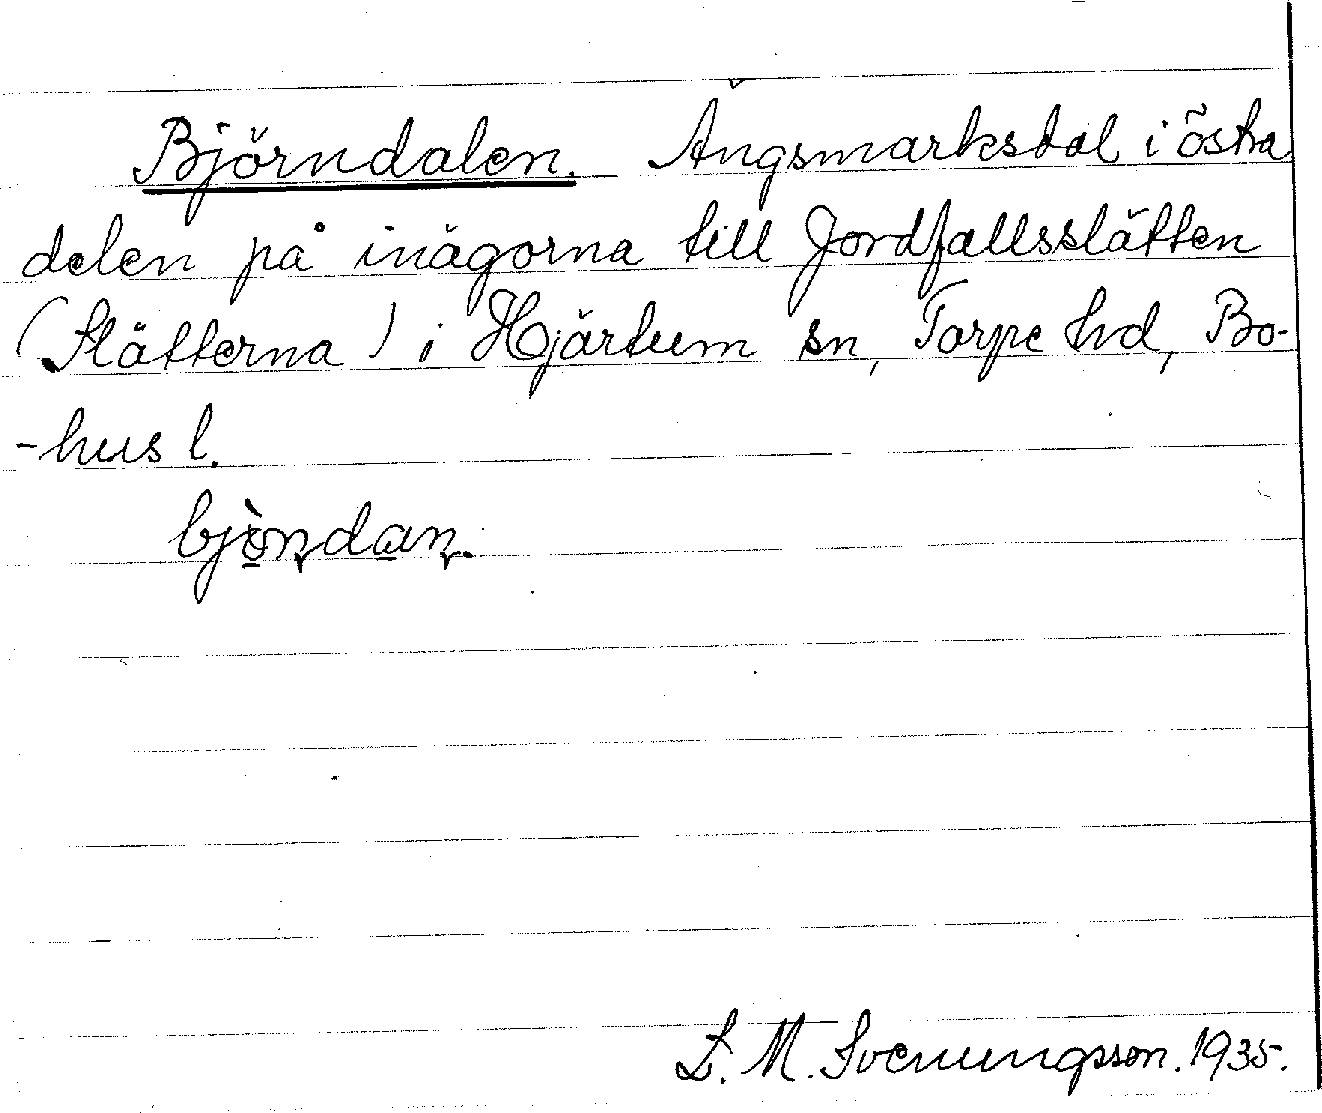 Björndalen. Ängsmarksdal i östra
delen på inägorna till Jordfallsslätten
(Slätterna) i Hjärtum sn, Torpe hd, Bo-
-hus l.
bjö̀ndan.
L. M. Svenungsson. 1935.